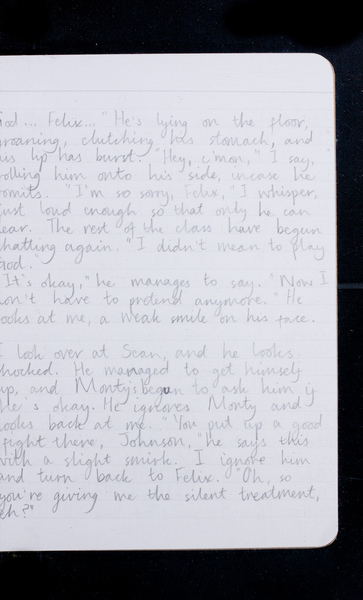 God... Felix..." He's lying on the floor,
groaning, clutching his stomach, and
his lip has burst. "Hey, c'mon," I say,
rolling him onto his side, incase he
vomits. "I'm so sorry, Felix," I whisper,
just loud enough so that only he can
hear. The rest of the class have begun
chatting again. "I didn't mean to play
God."
"It's okay," he manages to say. "Now I
don't have to pretend anymore." He
looks at me, a weak smile on his face.
I look over at Sean, and he looks
shocked. He managed to get himself
up, and Monty's began to ask him if
he's okay. He ignores Monty and
looks back at me. "You put up a good
fight there, Johnson," he says this
with a slight smirk. I ignore him
and turn back to Felix. "Oh, so
you're giving me the silent treatment,
eh?"